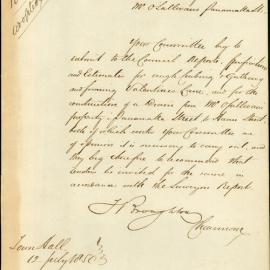 Mr O'Sullivans Parramatta St.
Your Committee beg to
submit to the Council Reports, Specifications
and Estimates for rough forming & Guttering
and forming Valentines Lane, and for the
construction of a Drain from Mr O'Sullivans
property Parramatta Street to
both of which works Your Committee are
of opinion it is necessary to carry out, and
they beg therefore to recommend that
tenders be invited for the same in
accordance with the Surveyors Report.
Broughton
Chairman
Town Hall
12 July